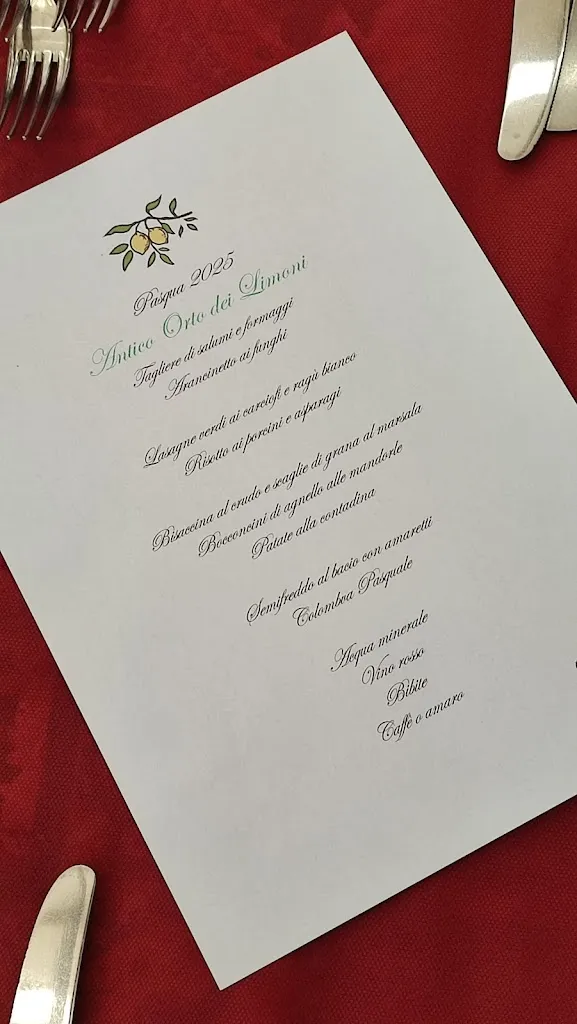 Pasqua 2025
Antico Orto dei Limoni
Tagliere di salumi e formaggi
Arancinetto ai funghi
Lasagne verdi ai carciofi e ragù bianco
Risotto ai porcini e asparagi
Bisaccina al crudo e scaglie di grana al marsala
Bocconcini di agnello alle mandorle
Patate alla contadina
Semifreddo al bacio con amaretti
Colomboa Pasquale
Acqua minerale
Vino rosso
Bibite
Caffè o amaro